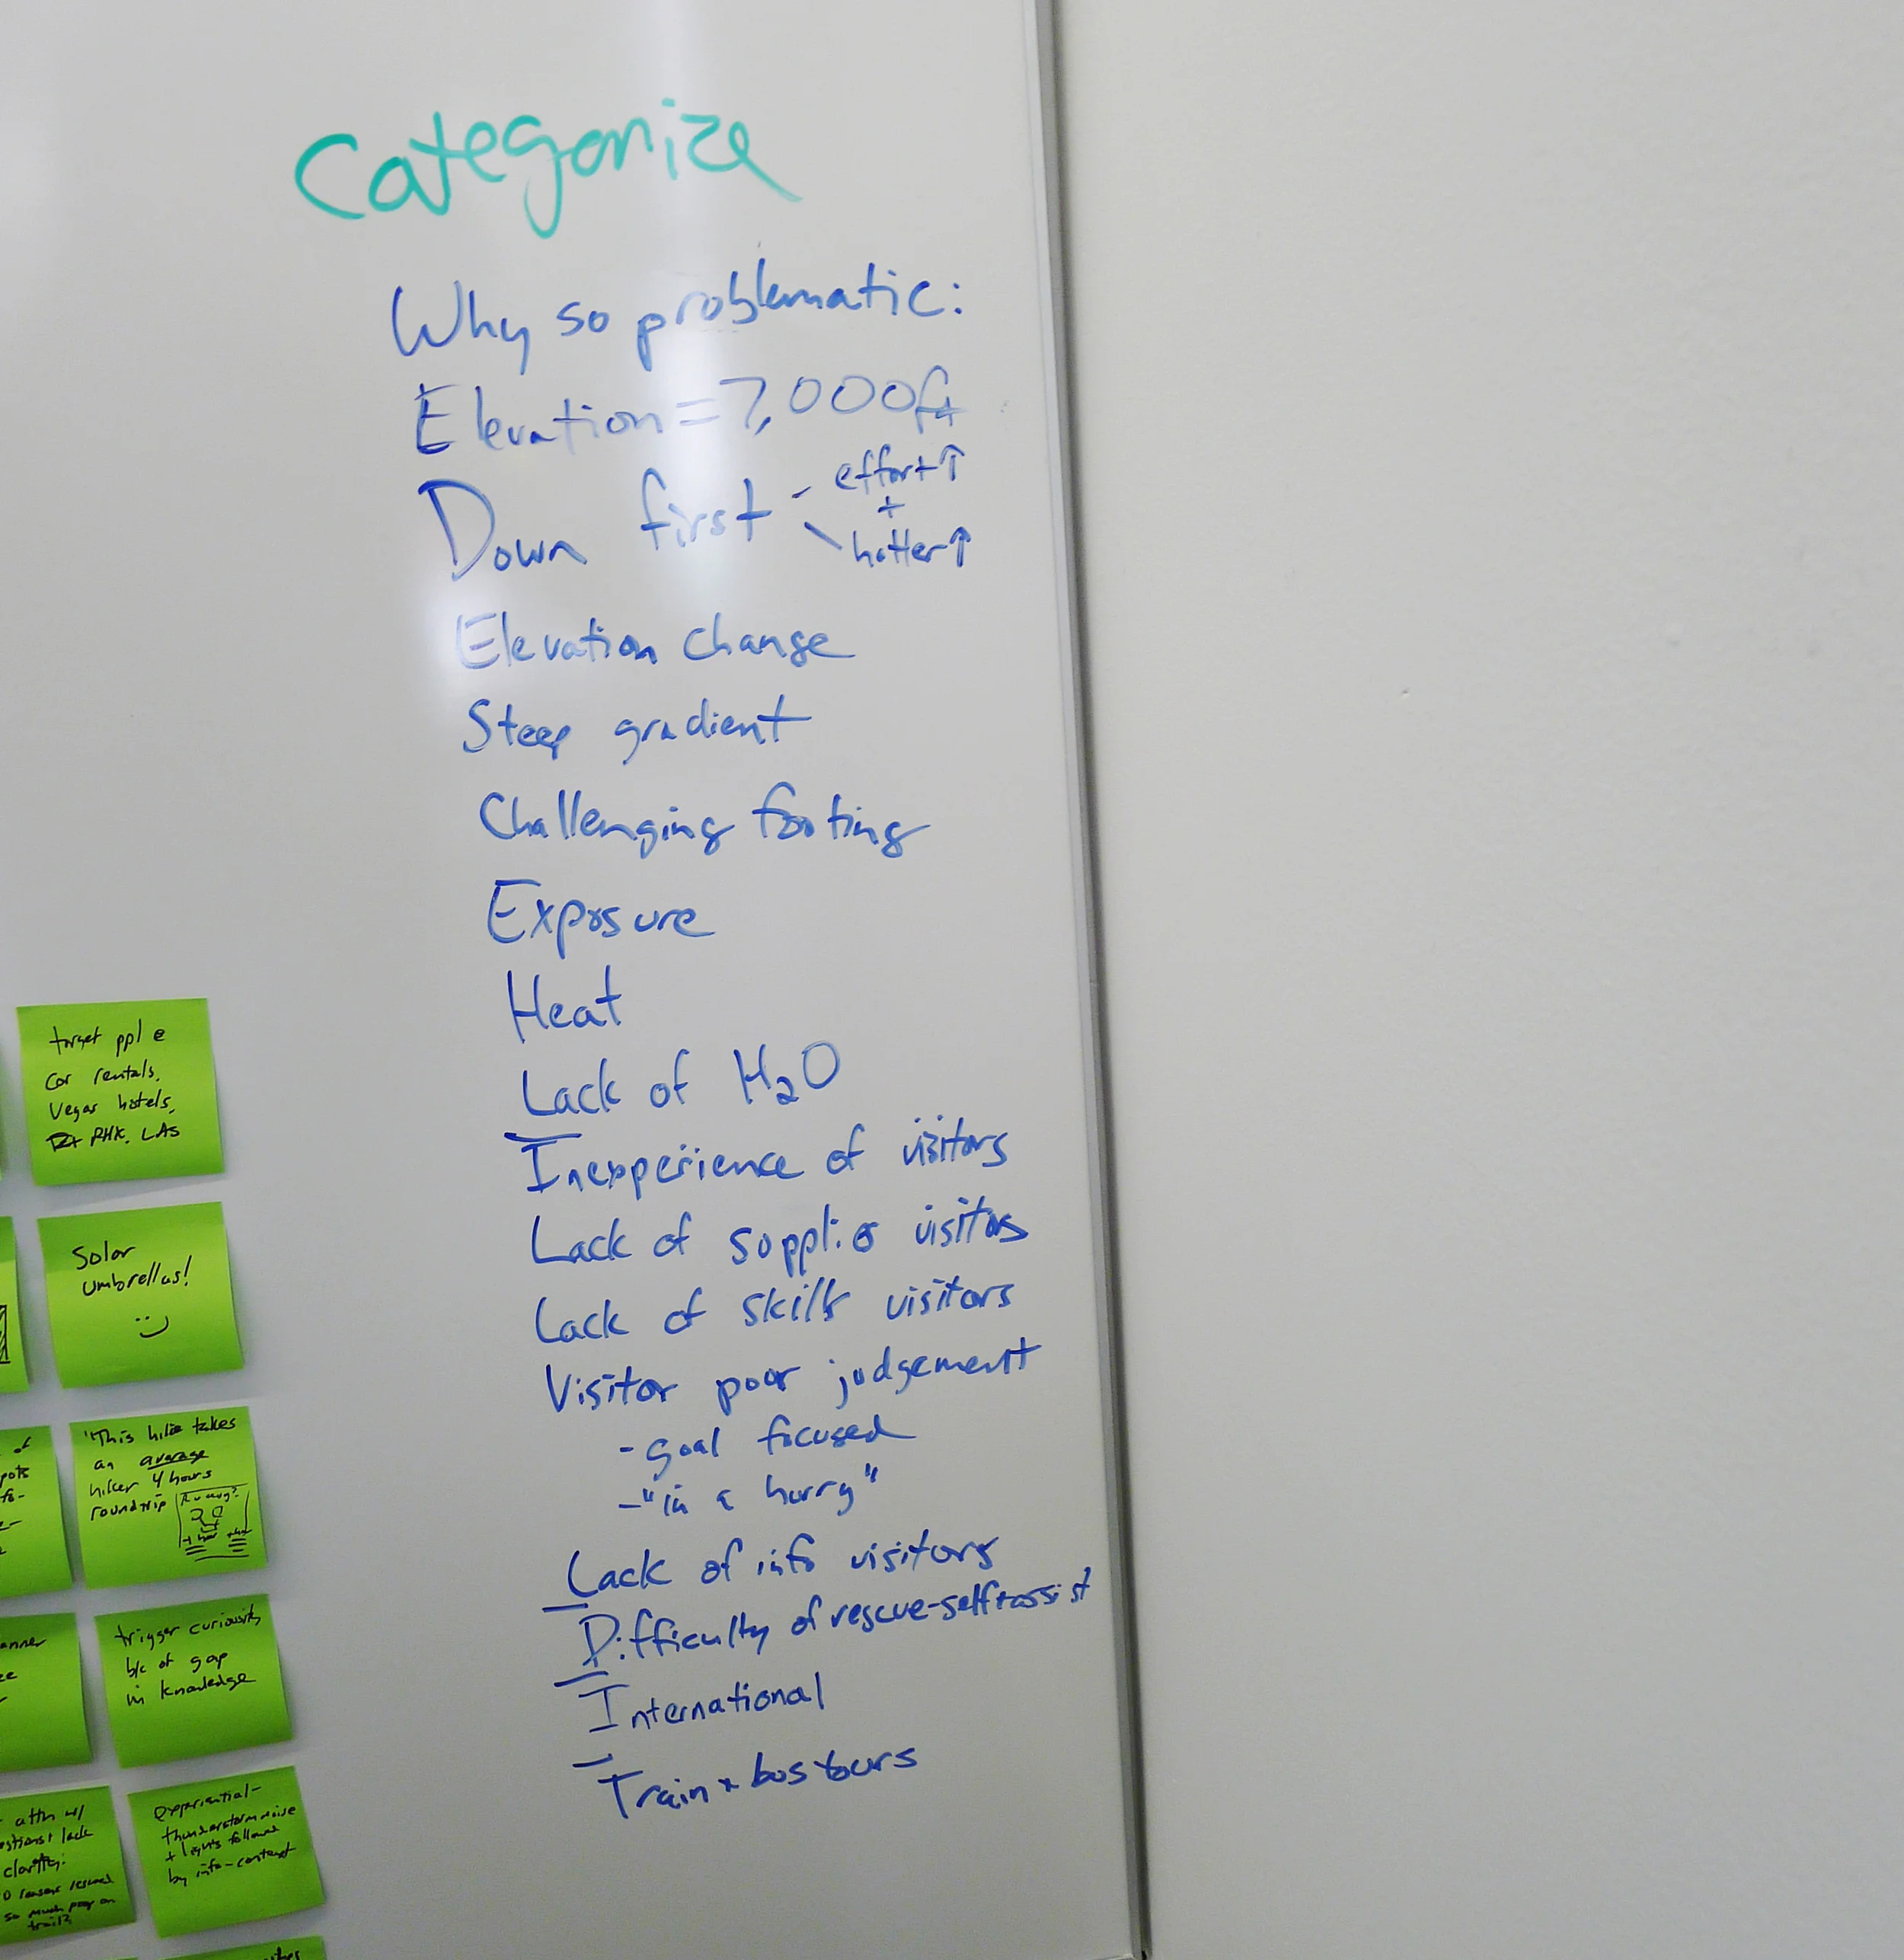 Categorize
Why so problematic:
Elevation = 7,000ft
Down first - effort ↑
+
\ hotter ↑
Elevation change
Steep gradient
Challenging footing
Exposure
Heat
Lack of H2O
Inexperience of visitors
Lack of supplies visitors
Lack of skills visitors
Visitor poor judgement
- goal focused
- "in a hurry"
Lack of info visitors
Difficulty of rescue-self+assist
International
Train + bus tours
target ppl @
car rentals,
Vegas hotels,
PHX, LAs
Solar
umbrellas!
"This hike takes
an average
hiker 4 hours
roundtrip
trigger curiosity
b/c of gap
in knowledge
experiential-
thunderstorm noise
+ lights followed
by info-content
of
pots
anner
attn w/
lack
clarity:
so much poop on
trail?